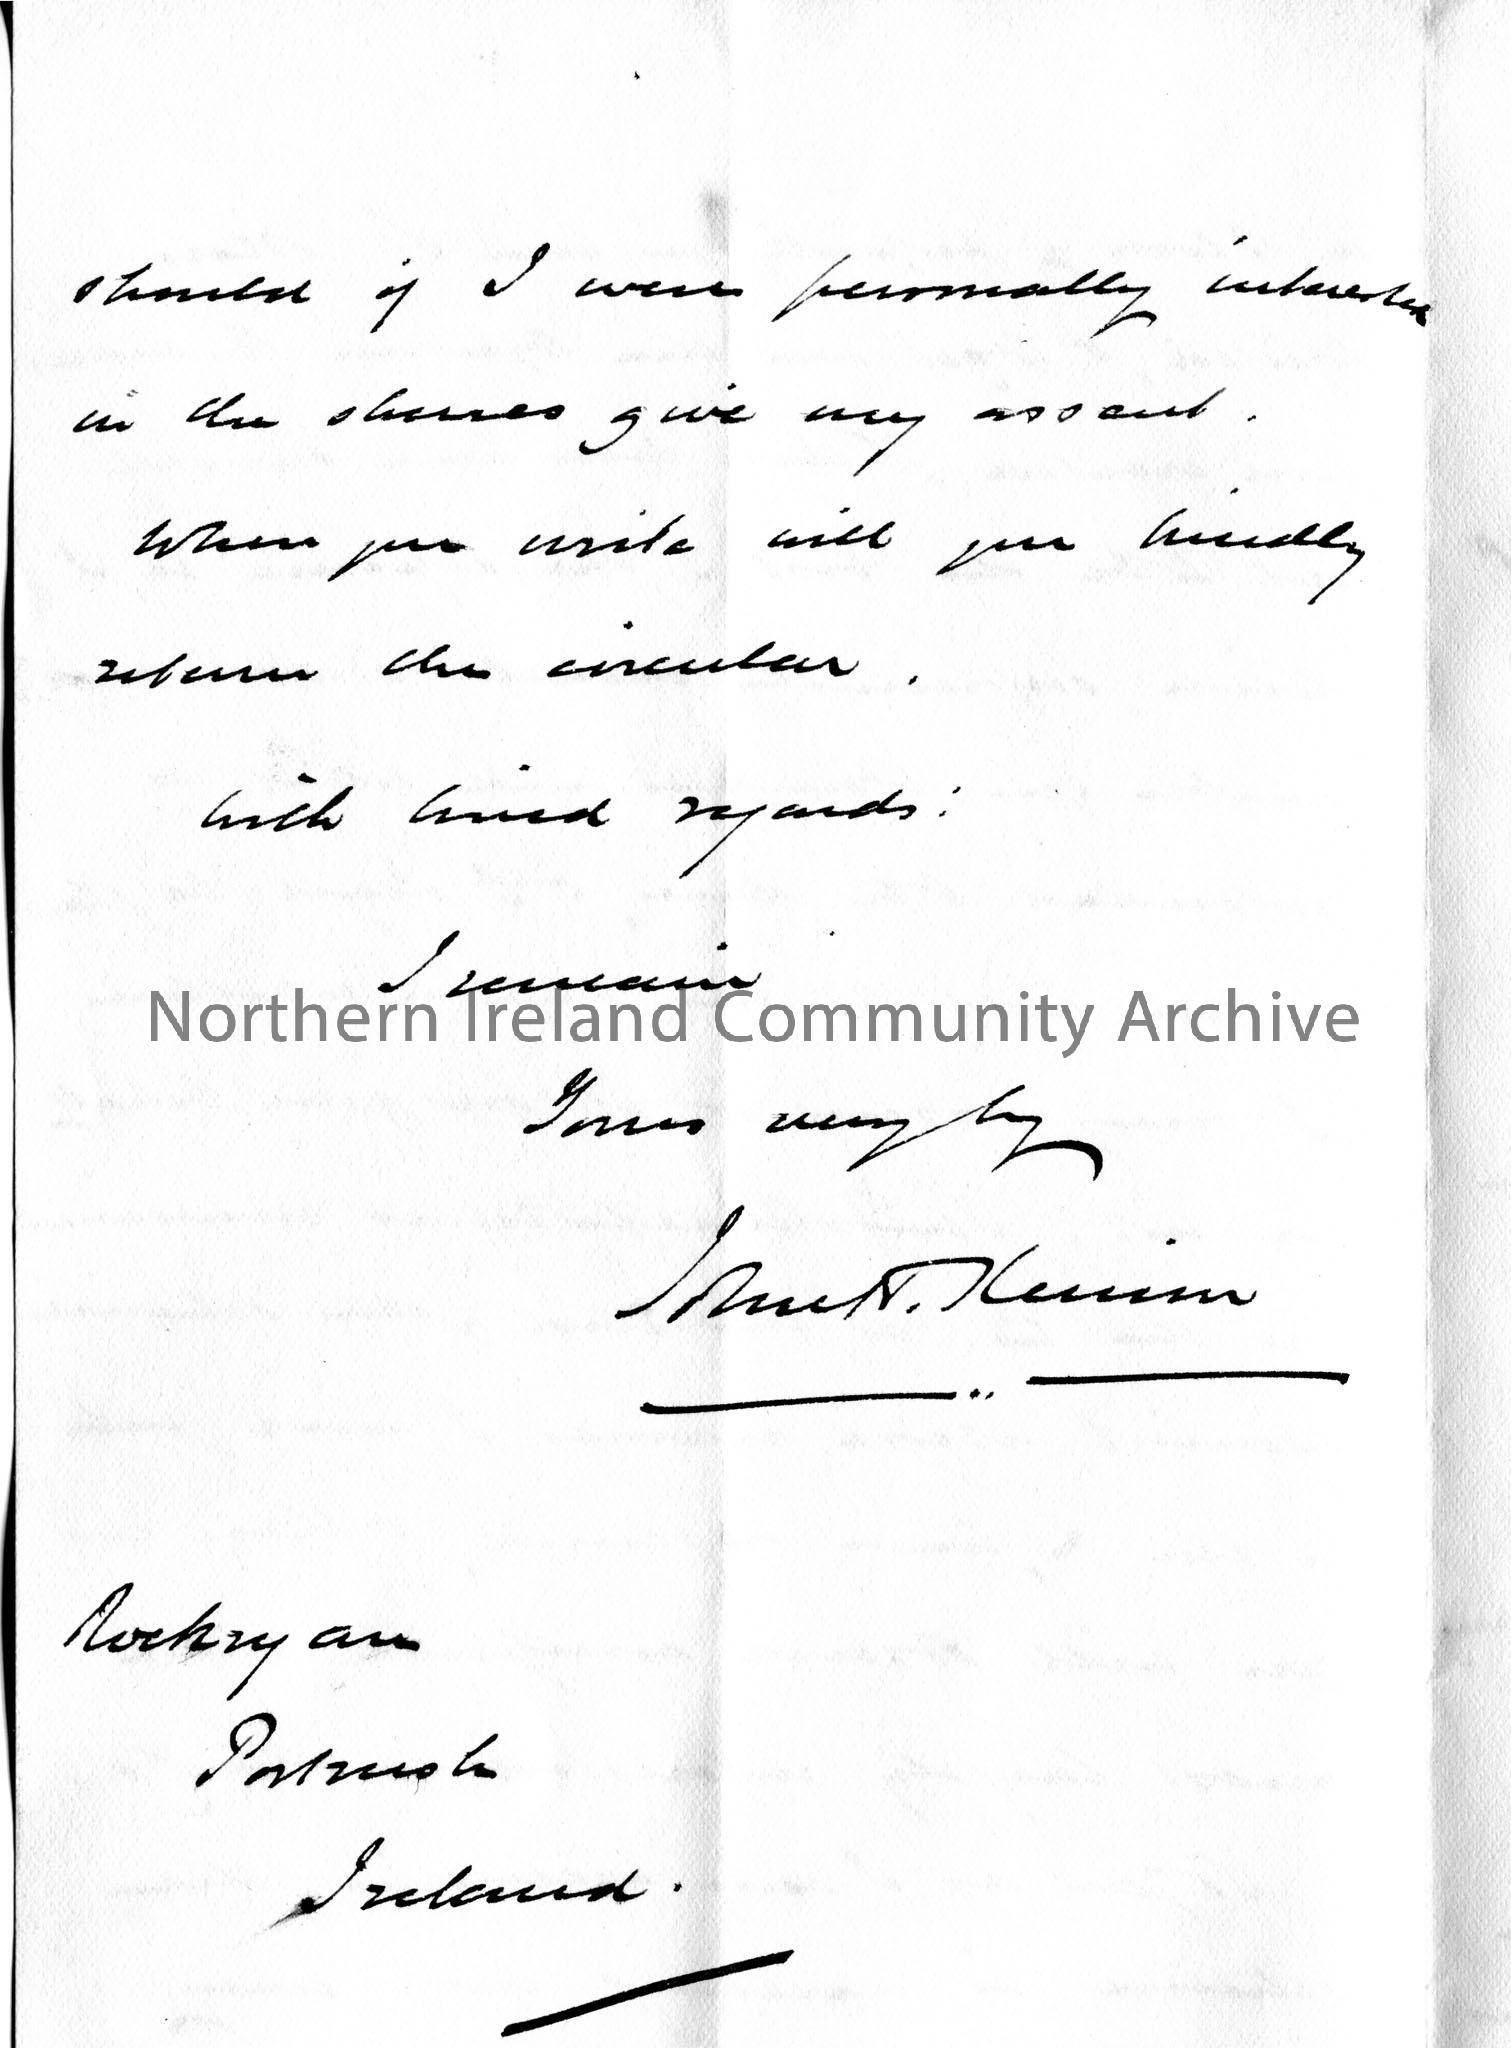 should if I were personally interested
in the shares give my assent.
When you write will you kindly
return the circular.
With kind regards:
I remain
Northern Ireland Community Archive
Yours very try
John H.
Rockryan
Portrush
Ireland.